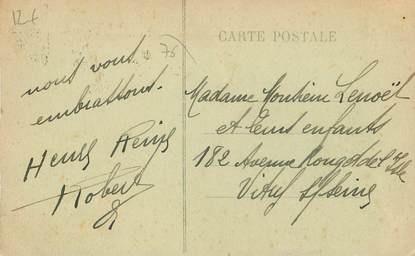 12f
76
nous vous
embrassons.
Henri
Robert
CARTE POSTALE
Madame Monsieur Lenoët
et leurs enfants
182 Avenue Rouget de l'Isle
Vitry s/Seine